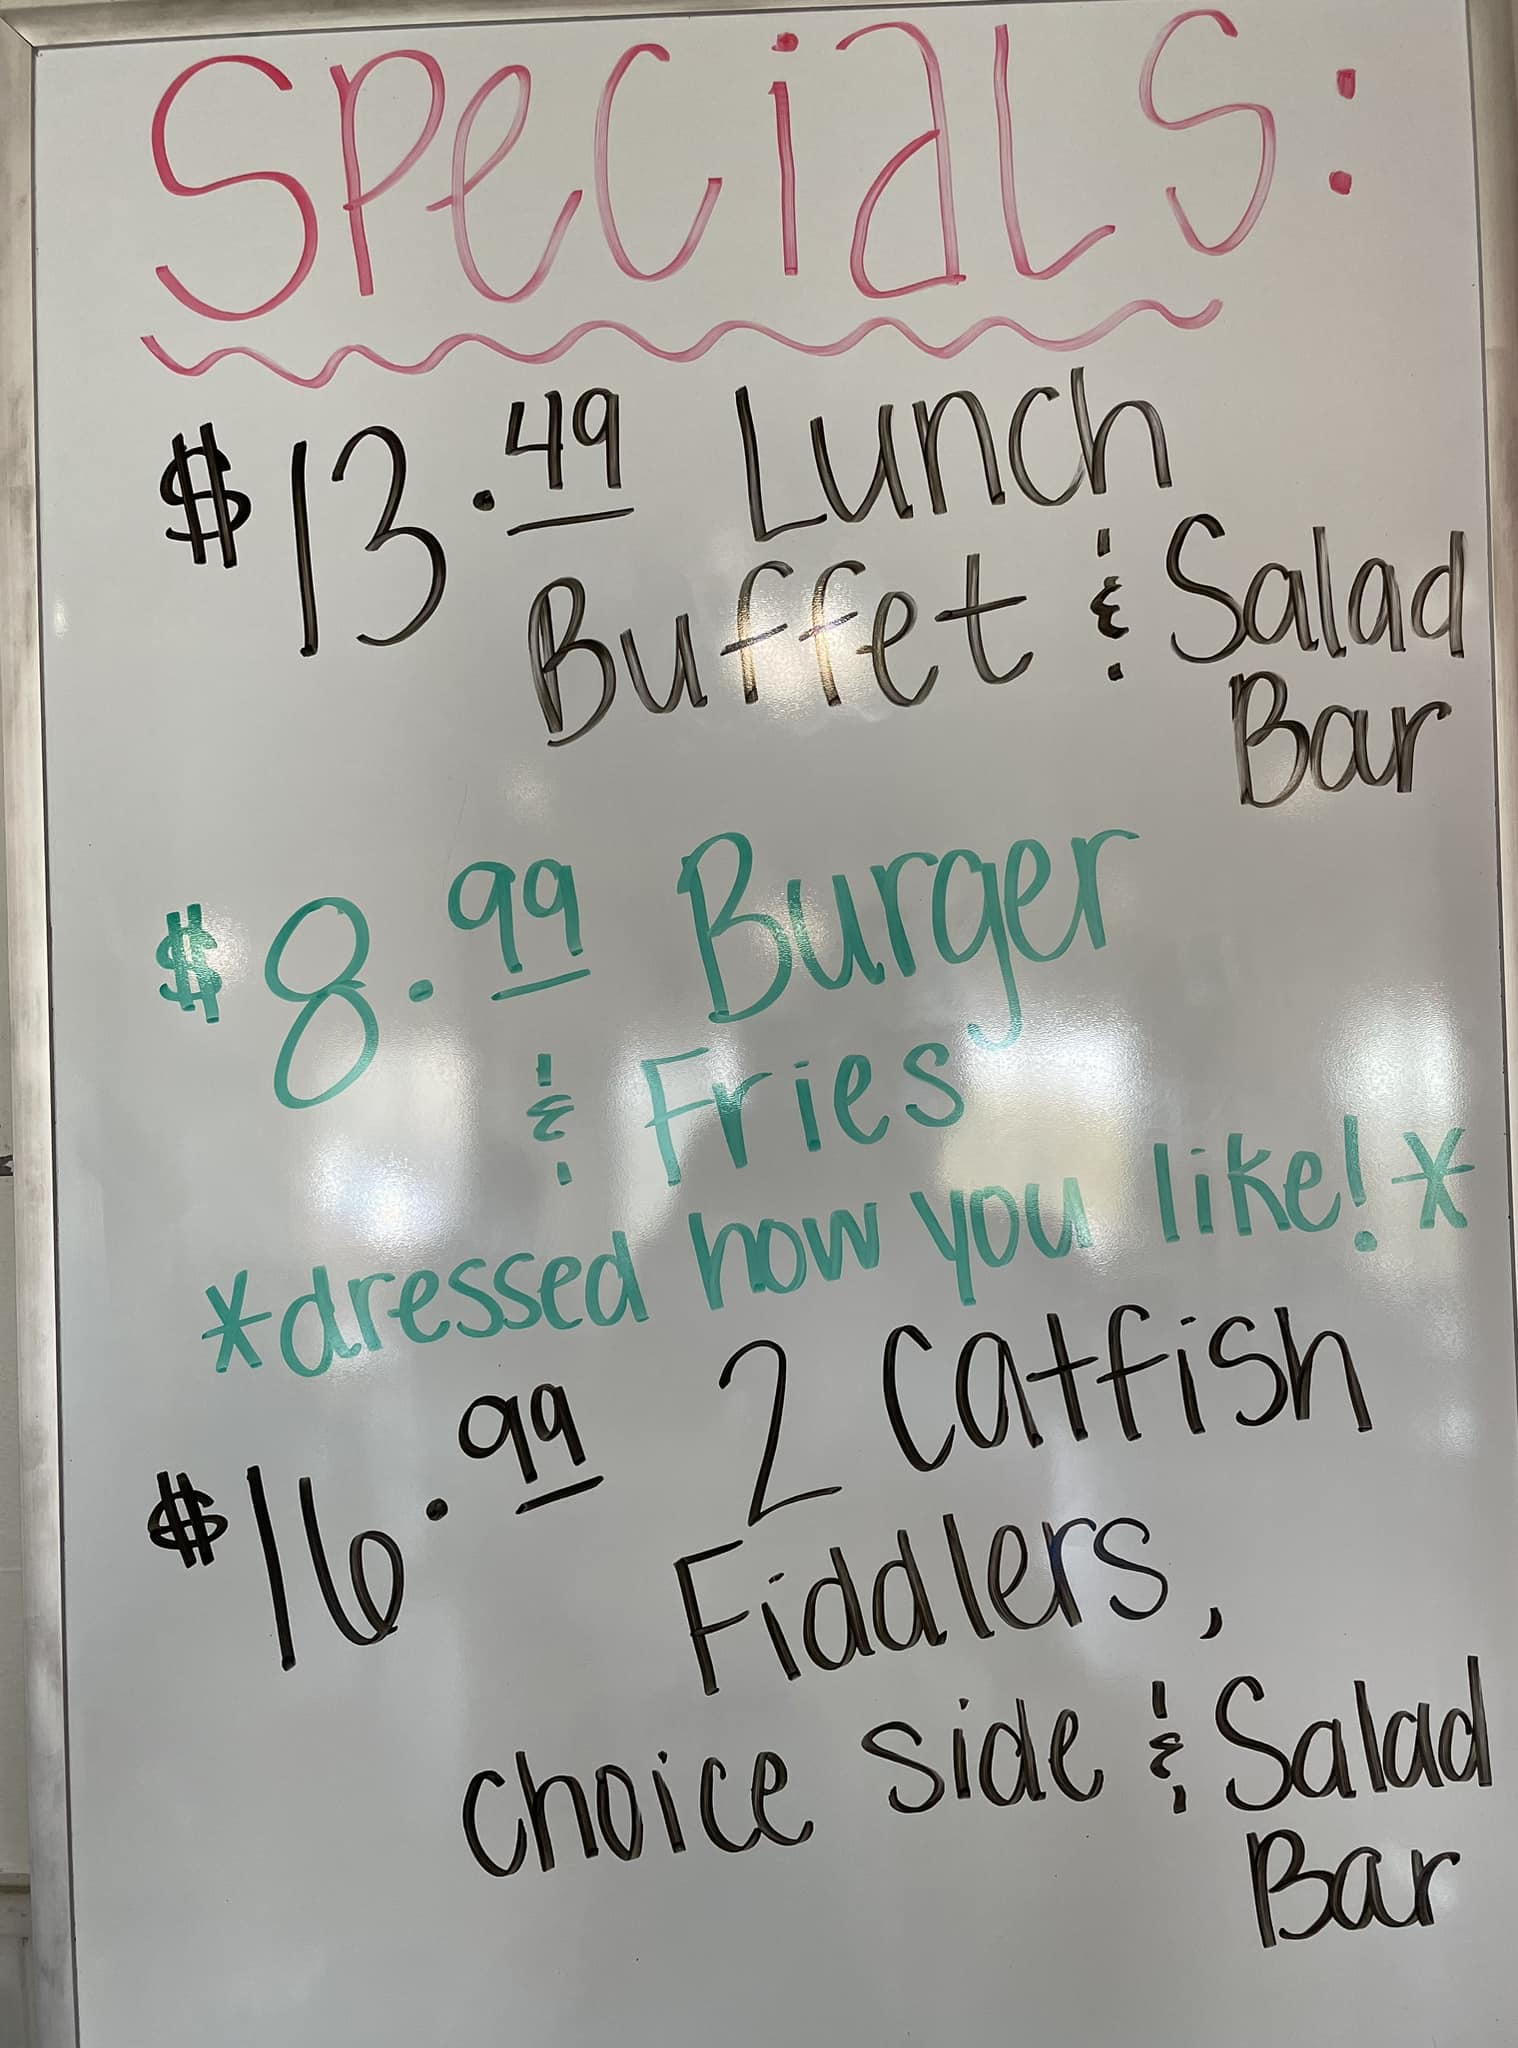 Specials:
$13.49 Lunch
Buffet & Salad
Bar
$8.99 Burger
& Fries
*dressed how you like!*
$16.99 2 Catfish
Fiddlers,
choice side & Salad
Bar